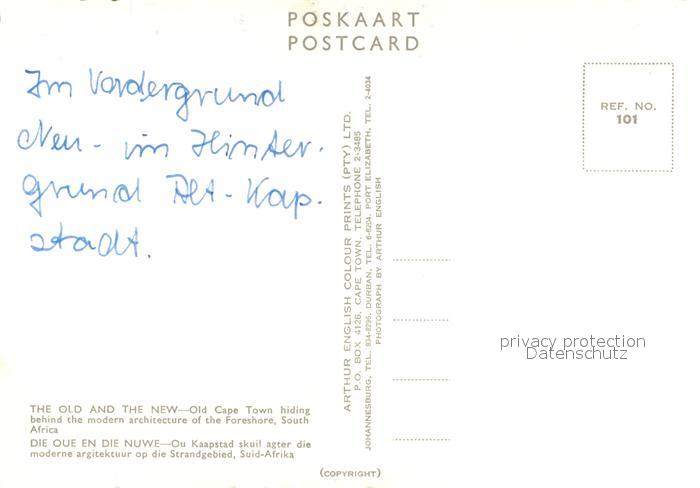 POSKAART
POSTCARD
Im Vordergrund
Neu - im Hinter.
grund Alt - Kap.
stadt.
THE OLD AND THE NEW—Old Cape Town hiding
behind the modern architecture of the Foreshore, South
Africa
DIE OUE EN DIE NUWE—Ou Kaapstad skuil agter die
moderne argitektuur op die Strandgebied, Suid-Afrika
(COPYRIGHT)
ARTHUR ENGLISH COLOUR PRINTS (PTY) LTD.
P.O. BOX 4126, CAPE TOWN. TELEPHONE 2-3485
JOHANNESBURG, TEL. 834-8296, DURBAN, TEL. 6-6204, PORT ELIZABETH, TEL. 2-4034
PHOTOGRAPH BY ARTHUR ENGLISH
REF. NO.
101
privacy protection
Datenschutz